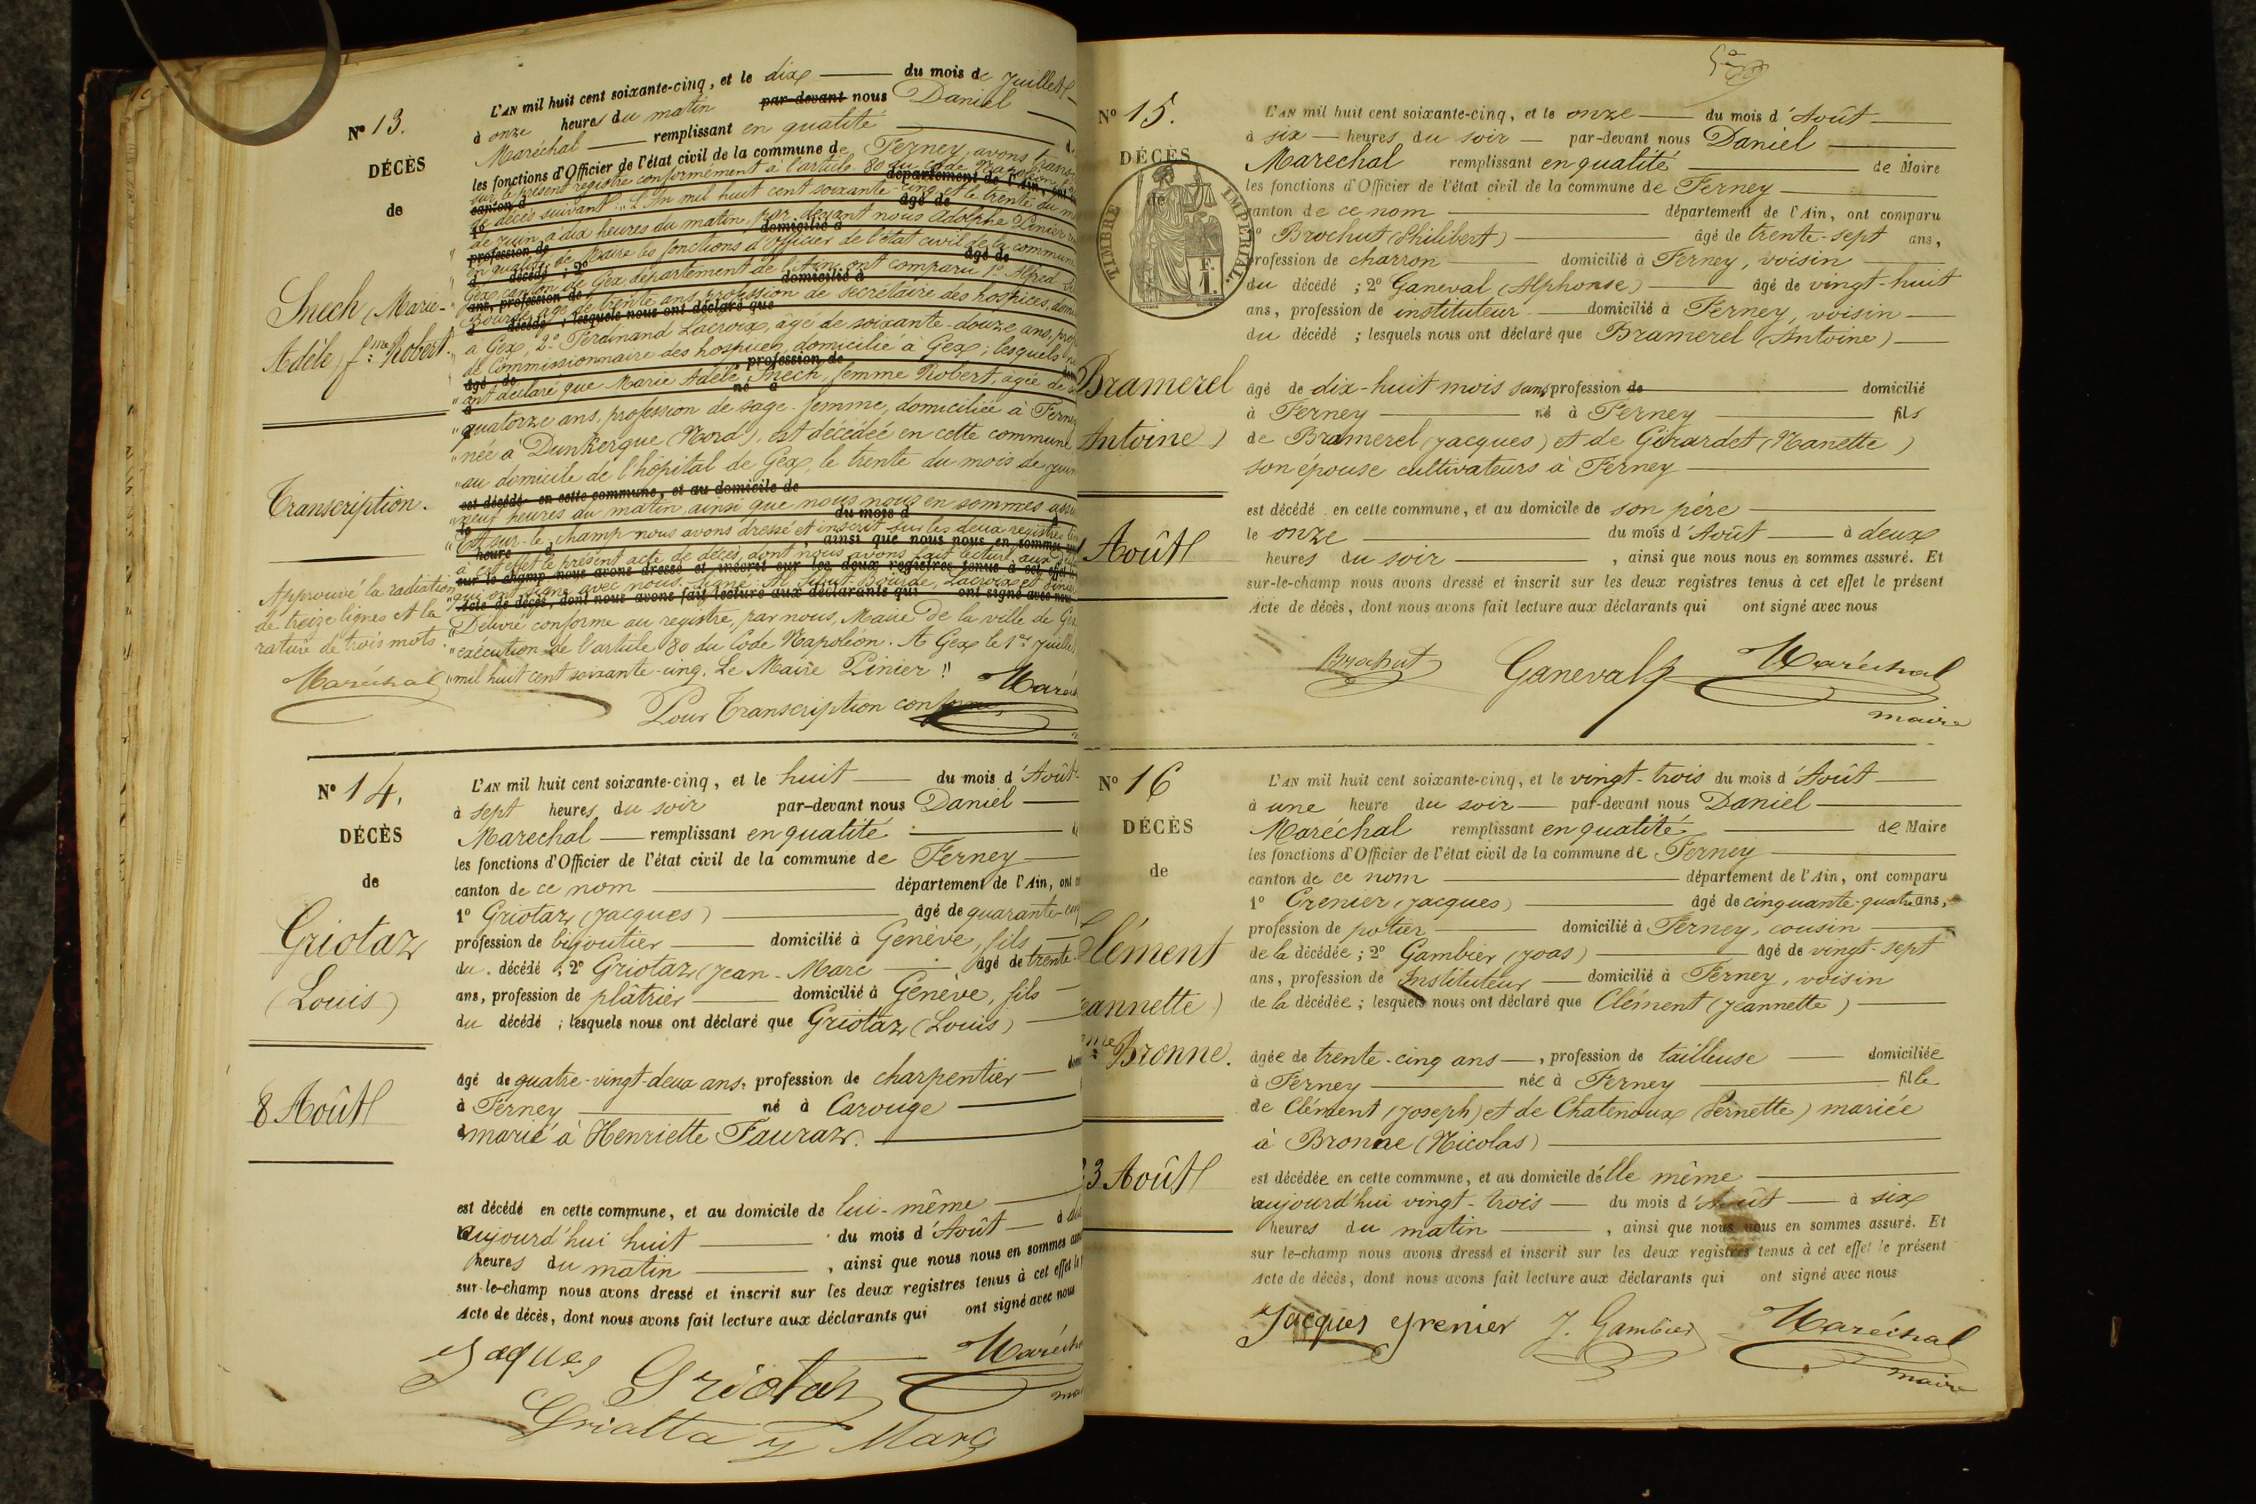 N° 13.
DÉCÈS
de
Snech (Marie-
Adèle) f.me Robert.
Transcription.
Approuvé la radiation
de treize lignes et la
rature de trois mots.
Maréchal
L'AN mil huit cent soixante-cinq, et le dix du mois de Juillet
à onze heures du matin par-devant nous Daniel
Maréchal remplissant en qualité
les fonctions d'Officier de l'état civil de la commune de Ferney, avons trans-
sur le présent registre conformément à l'article 80 du Code Napoléon
canton d département de l'Ain,
de décès suivant: "L'An mil huit cent soixante-cinq et le trente du
1° âgé de
" de juin, à dix heures du matin, par devant nous Adolphe Pinier
profession de domicilié à
" en qualité de Maire les fonctions d'officier de l'état civil de la commune
d décédé ; 2° âgé de
" Gex canton de Gex, département de l'Ain, ont comparu 1° Alfred
ans, profession de domicilié à
Bourde, âgé de trente ans, profession de secrétaire des hospices,
d décédé ; lesquels nous ont déclaré que
" à Gex, 2° Ferdinand Lacroix, âgé de soixante-douze ans,
" de Commissionnaire des hospices, domicilié à Gex; lesquels
âgé de profession de
" ont déclaré que Marie Adèle Snech, femme Robert, âgée de
à né à
" quatorze ans, profession de sage-femme, domiciliée à Ferney
" née à Dunkerque (Nord), est décédée en cette commune
" au domicile de l'hôpital de Gex, le trente du mois de juin
est décédé en cette commune, et au domicile de
" neuf heures du matin ainsi que nous nous en sommes
le du mois d à
" Et sur-le-champ nous avons dressé et inscrit sur les deux registres
heure d , ainsi que nous nous en sommes
" à cet effet le présent acte de décès, dont nous avons fait lecture aux
sur le champ nous avons dressé et inscrit sur les deux registres tenus à cet effet
" qui ont signé avec nous. Signé: Bourde, Lacroix et
Acte de décès, dont nous avons fait lecture aux déclarants qui ont signé avec nous
" Délivré conforme au registre, par nous, Maire de la ville de Gex
" exécution de l'article 80 du Code Napoléon. A Gex le 1er juillet
" mil huit cent soixante-cinq. Le Maire Pinier"
Pour Transcription conforme,
N° 14.
DÉCÈS
de
Griotaz
(Louis)
8 Août
L'AN mil huit cent soixante-cinq, et le huit du mois d'Août
à sept heures du soir par-devant nous Daniel
Marechal remplissant en qualité
les fonctions d'Officier de l'état civil de la commune de Ferney
canton de ce nom département de l'Ain, ont
1° Griotaz (Jacques) âgé de quarante-cinq
profession de bijoutier domicilié à Genève, fils
du décédé ; 2° Griotaz (Jean-Marc âgé de trente-
ans, profession de plâtrier domicilié à Genève, fils
du décédé ; lesquels nous ont déclaré que Griotaz (Louis)
âgé de quatre-vingt-deux ans, profession de charpentier
à Ferney né à Carouge
marié à Henriette Fauraz.
est décédé en cette commune, et au domicile de lui-même
aujourd'hui huit du mois d'Août à
heures du matin , ainsi que nous nous en sommes
sur-le-champ nous avons dressé et inscrit sur les deux registres tenus à cet effet le
Acte de décès, dont nous avons fait lecture aux déclarants qui ont signé avec nous
Jaques Griotaz
Griotta y Marc
N° 15.
DÉCÈS
de
TIMBRE IMPÉRIAL
Bramerel
Antoine)
Août
L'AN mil huit cent soixante-cinq, et le onze du mois d'Août
à six heures du soir par-devant nous Daniel
Maréchal remplissant en qualité de Maire
les fonctions d'Officier de l'état civil de la commune de Ferney
canton de ce nom département de l'Ain, ont comparu
1° Brochut (Philibert) âgé de trente-sept ans,
profession de charron domicilié à Ferney, voisin
du décédé ; 2° Ganeval (Alphonse) âgé de vingt-huit
ans, profession de instituteur domicilié à Ferney, voisin
du décédé ; lesquels nous ont déclaré que Bramerel (Antoine)
âgé de dix-huit mois sans profession de domicilié
à Ferney né à Ferney fils
de Bramerel (Jacques) et de Girardet (Nanette)
son épouse cultivateurs à Ferney
est décédé en cette commune, et au domicile de son père
le onze du mois d'Août à deux
heures du soir , ainsi que nous nous en sommes assuré. Et
sur-le-champ nous avons dressé et inscrit sur les deux registres tenus à cet effet le présent
Acte de décès, dont nous avons fait lecture aux déclarants qui ont signé avec nous
Brochut Ganeval Maréchal
maire
N° 16
DÉCÈS
de
Clément
Jeannette)
f.me Bronne.
23 Août
L'AN mil huit cent soixante-cinq, et le vingt-trois du mois d'Août
à une heure du soir par-devant nous Daniel
Maréchal remplissant en qualité de Maire
les fonctions d'Officier de l'état civil de la commune de Ferney
canton de ce nom département de l'Ain, ont comparu
1° Grenier (Jacques) âgé de cinquante-quatre ans,
profession de potier domicilié à Ferney, cousin
de la décédée ; 2° Gambier (Joas) âgé de vingt-sept
ans, profession de Instituteur domicilié à Ferney, voisin
de la décédée ; lesquels nous ont déclaré que Clément (Jeannette)
âgée de trente-cinq ans , profession de tailleuse domiciliée
à Ferney née à Ferney fille
de Clément (Joseph) et de Chatenoux (Pernette) mariée
à Bronne (Nicolas)
est décédée en cette commune, et au domicile d'elle même
aujourd'hui vingt-trois du mois d'Août à six
heures du matin , ainsi que nous nous en sommes assuré. Et
sur le-champ nous avons dressé et inscrit sur les deux registres tenus à cet effet le présent
Acte de décès, dont nous avons fait lecture aux déclarants qui ont signé avec nous
Jacques Grenier J. Gambier Maréchal
maire